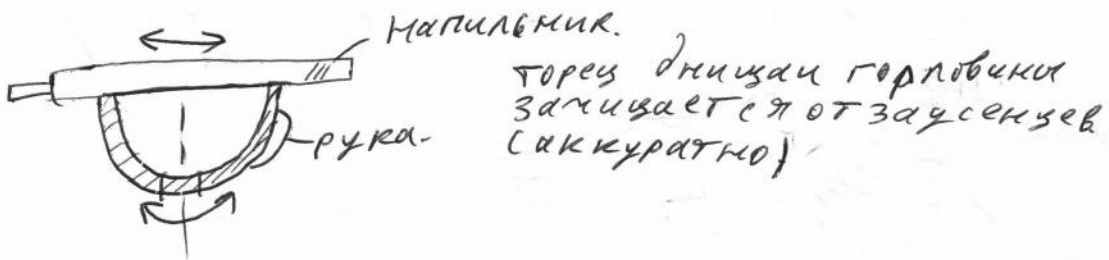 напильник.
торец днища и горловины
зачищается от заусенцев
(аккуратно)
рука.